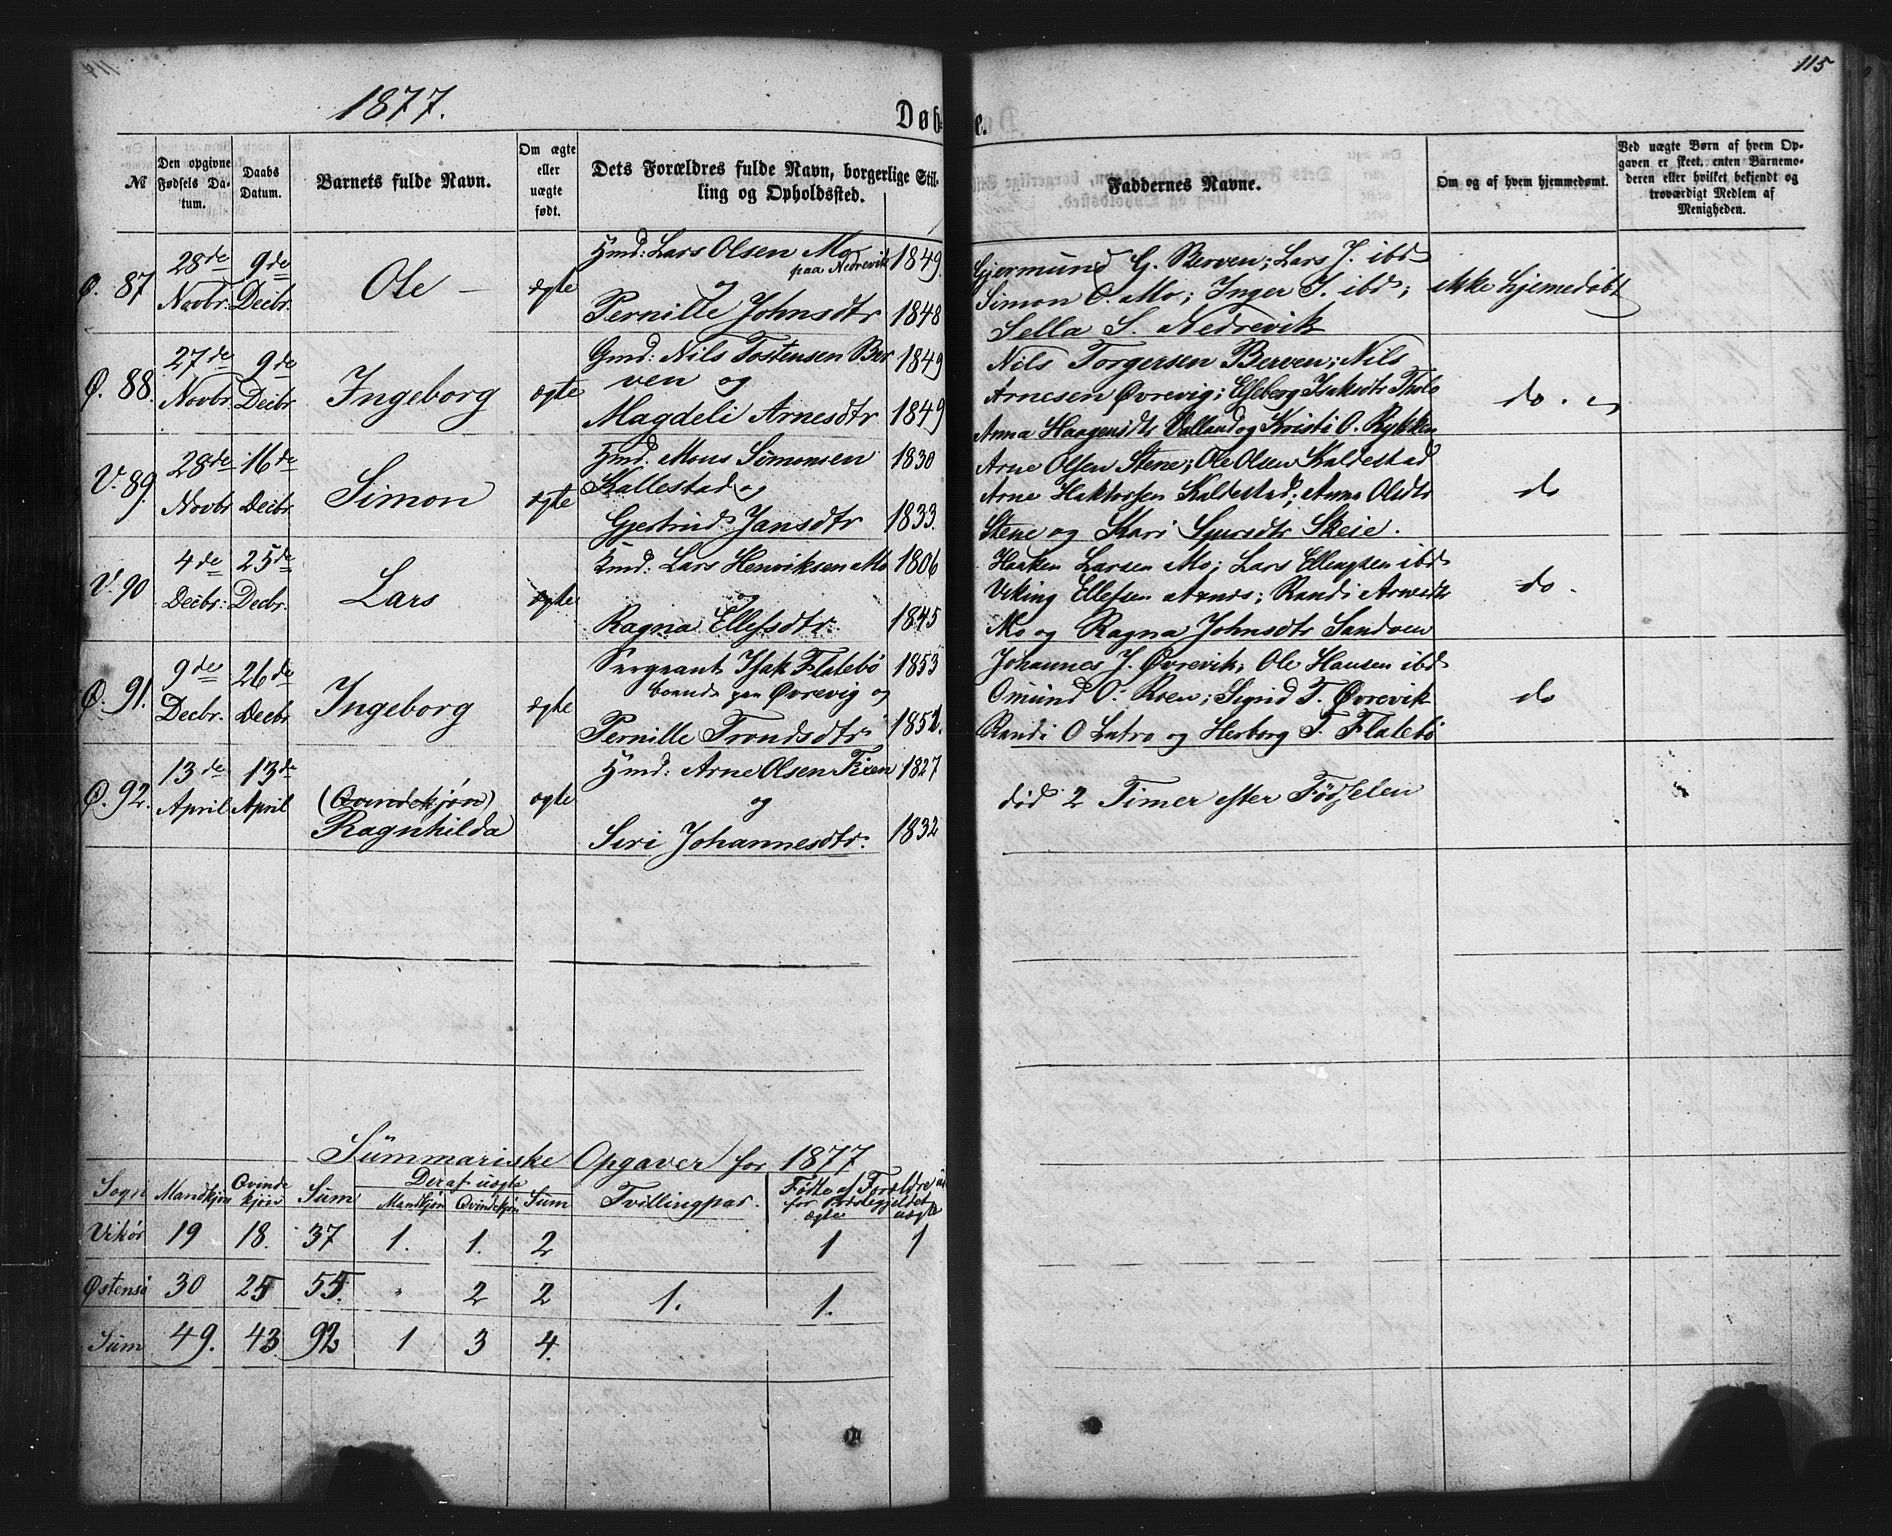 115
1877.
Døb- e.
№
Den opgivne Fødsels Da-tum.
Daabs Datum.
Barnets fulde Navn.
Om ægte eller uægte født.
Dets Forældres fulde Navn, borgerlige Stil-ling og Opholdssted.
Faddernes Navne.
Om og af hvem hjemmedømt.
Ved uægte Børn af hvem Op-gaven er skeet, enten Barnemo-deren eller hvilket bekjendt og troværdigt Medlem af Menigheden.
Ø. 87 28de Novbr. 9de Decbr. Ole ægte
Hmd: Lars Olsen Mo 1849.
paa Nedrevik
og
Pernille Johnsdtr 1848
Gjermund G. Berven; Lars J. ibd
Simon O. Mo; Inger S. ibd;
Sella S. Nedrevik
ikke hjemedøbt
Ø. 88. 27de Novbr. 9de Decbr Ingeborg ægte
Gmd: Nils Tostensen Ber 1849
ven og
Magdeli Arnesdtr 1849
Nils Torgersen Berven; Nils
Arnesen Øvrevig; Isaksdtr
Anna Haagensdtr og Kristi O. Rykken
do.
V. 89. 28de Novbr 16de Decbr. Simon ægte
Hmd. Mons Simonsen 1830
Kallestad og
Gjertrud Jansdtr 1833.
Arne Olsen Stene; Ole Olsen Kaldestad
Arne Haktorsen Kaldestad; Anna Olsdtr
Stene og Kari Sjursdtr Skeie.
do
V. 90 4de Decbr: 25de Decbr. Lars ægte
Lars Henriksen Mo 1806
og
Ragna Ellefsdtr. 1845
Haaken Larsen Mo; Lars Ellingsen ibd
Viking Ellefsen; Randi Arnesdtr
Mo og Ragna Johnsdtr Sandven
do.
Ø. 91. 9de Decbr. 26de Decbr Ingeborg ægte
Sergeant Isak Flatebø 1853
boende paa Øvrevig og
Pernille Trondsdtr 1852.
Johannes J. Øvrevik; Ole Hansen ibd
Omund O. Roen; Sigrid T. Øvrevik
Randi O Lutro og Herborg T. Flatebø
do
Ø. 92. 13de April 13de April (Qvindekjøn) Ragnhilda ægte
Hmd: Arne Olsen Fiien 1827
og
Siri Johannesdtr. 1832
død 2 Timer efter Fødselen
Summariske Opgaver for 1877
Sogn Mandkjøn Qvinde kjøn Sum Deraf uægte Mandkjøn Qvindekjøn Sum Tvillingpar. Fødte af Forældre for Præstegjeldet ægte uægte
Vikør 19 18. 37 1. 1. 2 1 1
Østensø 30 25 55. " 2 2 1. 1.
Sum 49. 43 92 1 3 4.